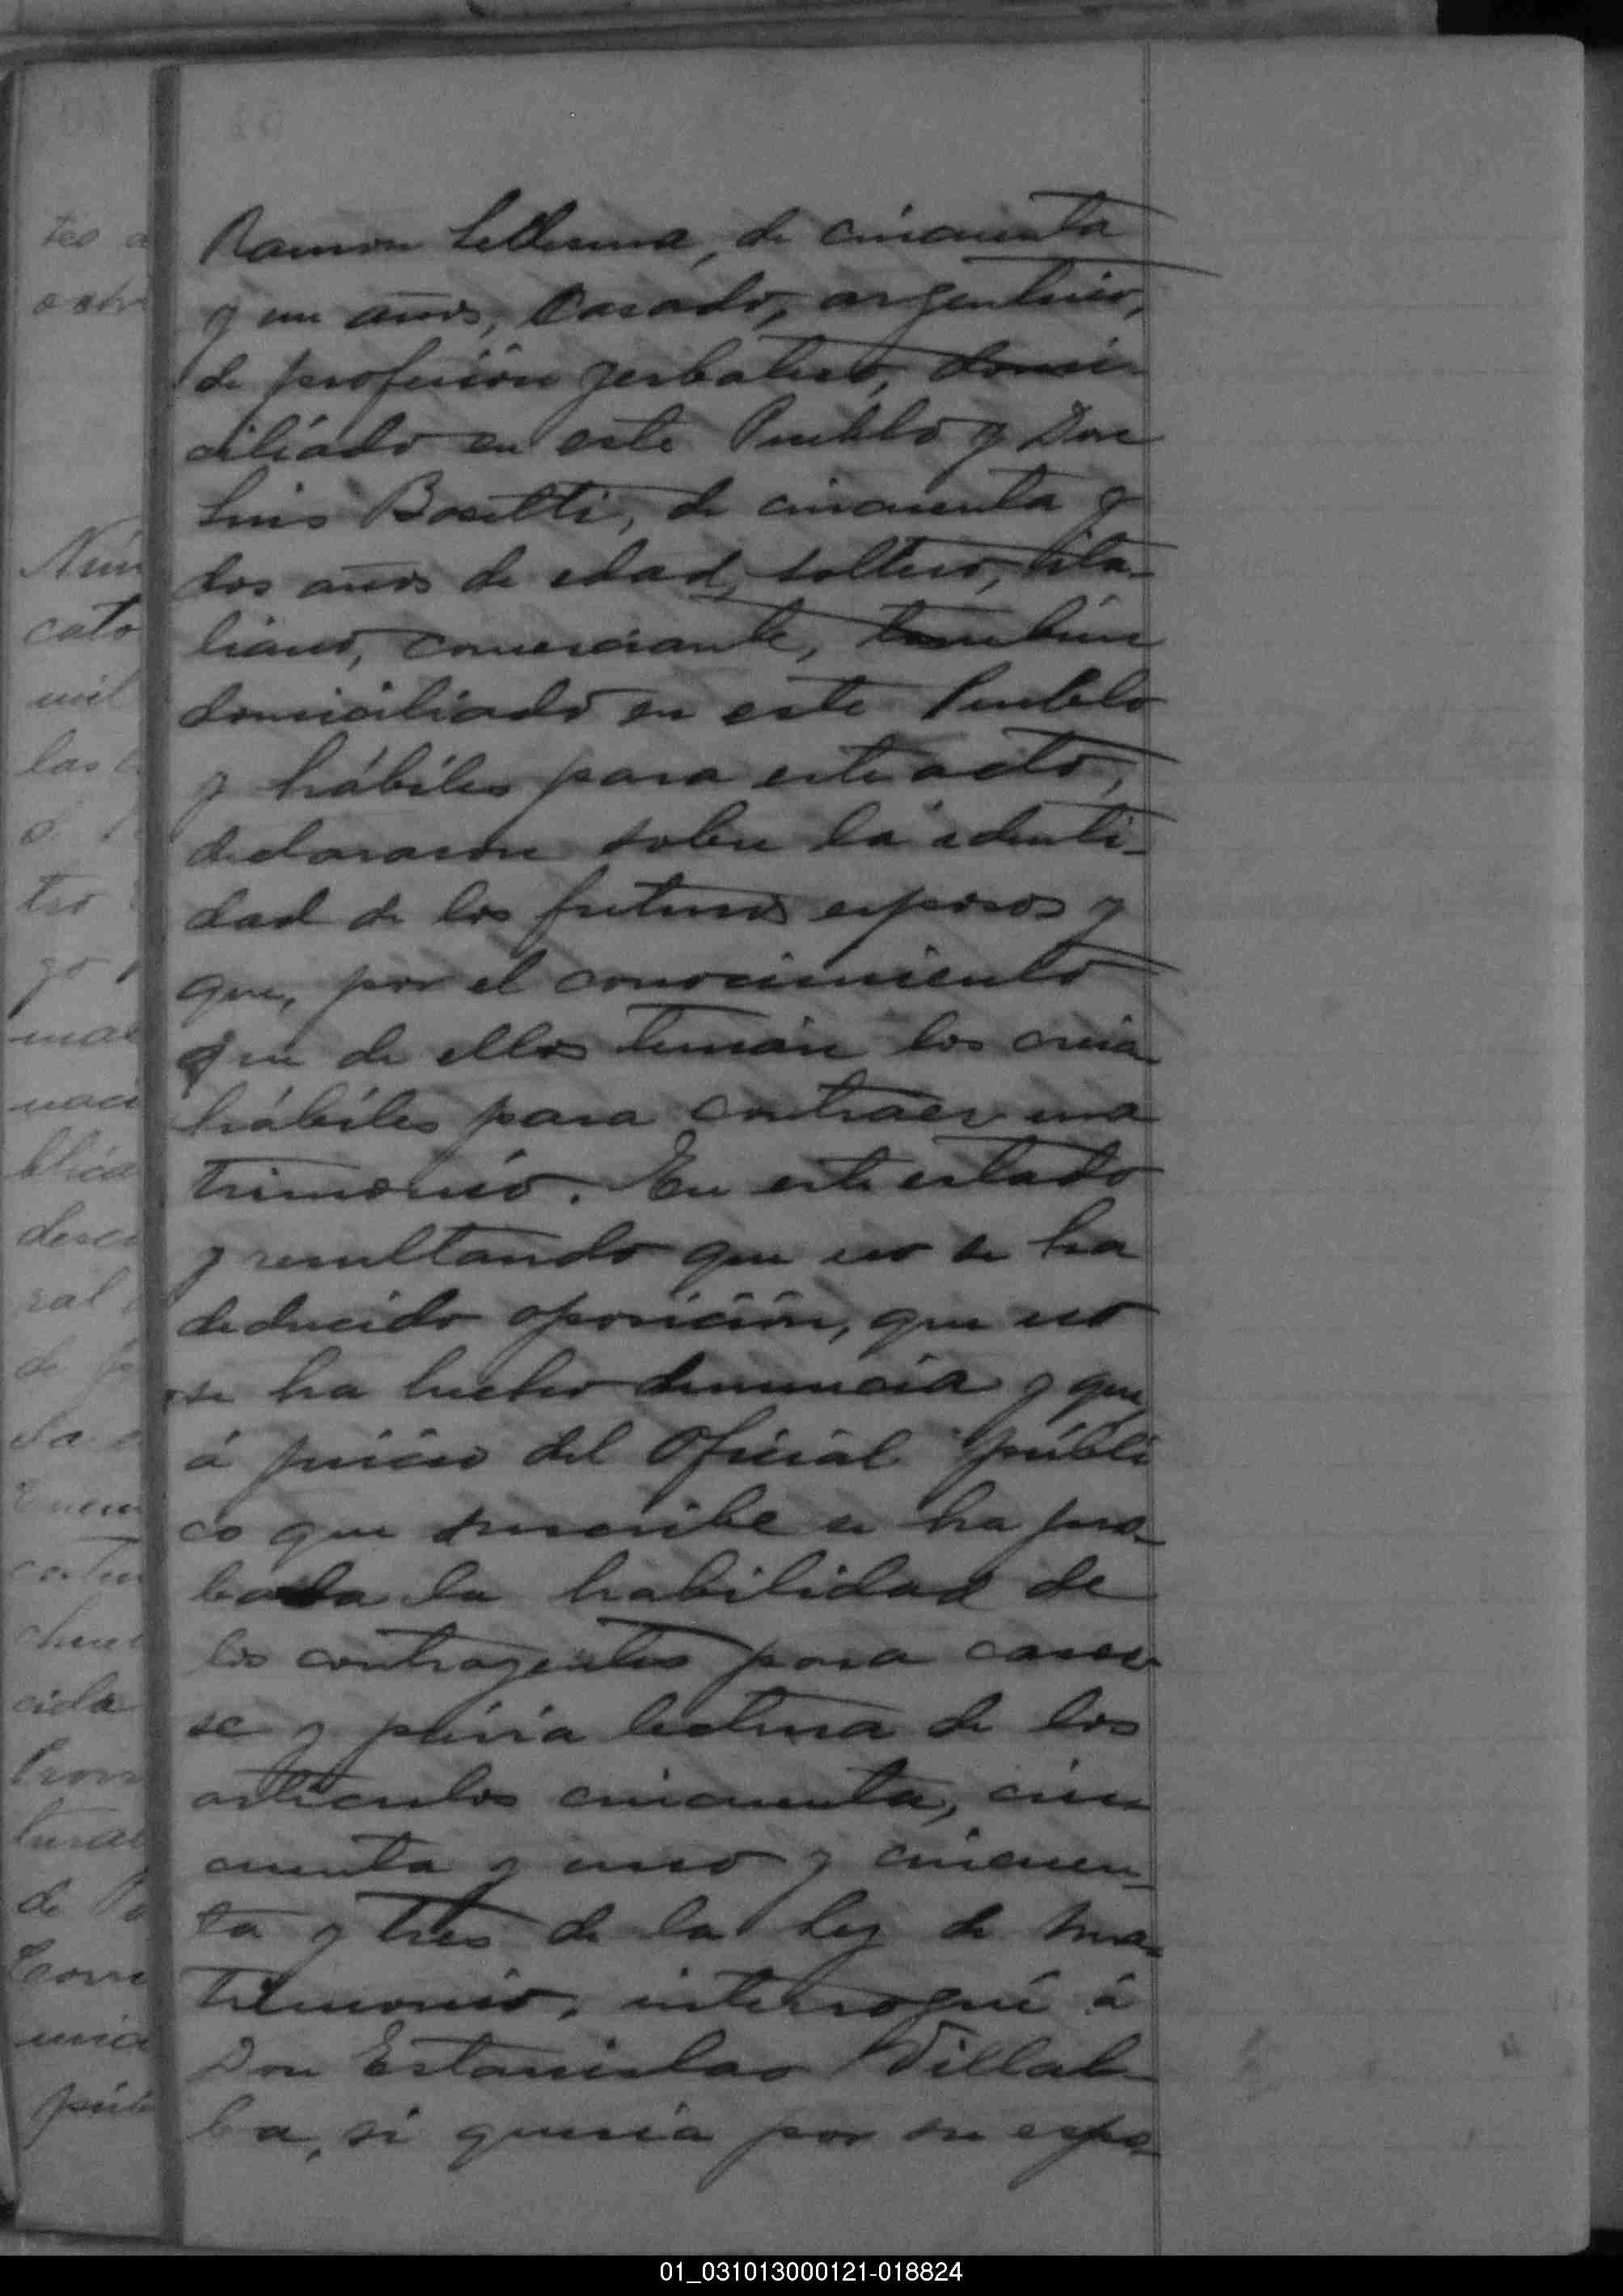 Ramon Ledesma, de cincuenta
y un años, casado, argentino,
de profesión yerbatero, domi-
ciliado en este Pueblo y Don
Luis Bosetti, de cincuenta y
dos años de edad, soltero, ita-
liano, comerciante, tambien
domiciliado en este Pueblo
y hábiles para este acto,
declararon sobre la identi-
dad de los futuros esposos y
que, por el conocimiento
que de ellos tenian los creia
hábiles para contraer ma
trimonio. En este estado
y resultando que no se ha
deducido oposición, que no
se ha hecho denuncia y que
á juicio del Oficial públi
co que suscribe se ha pro-
bada la habilidad de
los contrayentes para casar
se y prévia lectura de los
artículos cincuenta, cin
cuenta y uno y cincuen-
ta y tres de la Ley de Ma-
trimonio, interrogué á
Don Estanislao Villal-
ba, si queria por su espo-
01_031013000121-018824